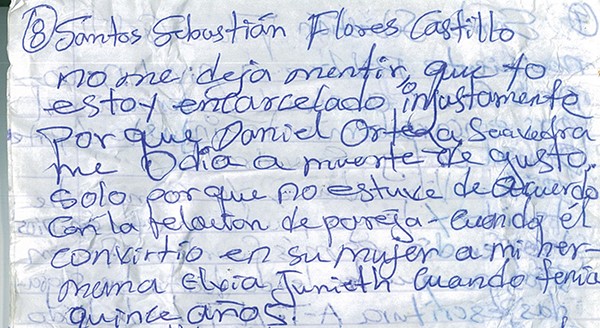 ⑧ Santos Sebastián Flores Castillo
no me deja mentir, que yo
estoy encarcelado injustamente
porque Daniel Ortega Saavedra
me Odia a muerte de gusto,
solo porque no estuve de acuerdo
con la relación de pareja - cuando él
convirtio en su mujer a mi her-
mana Elvia Junieth cuando tenia
quince años.